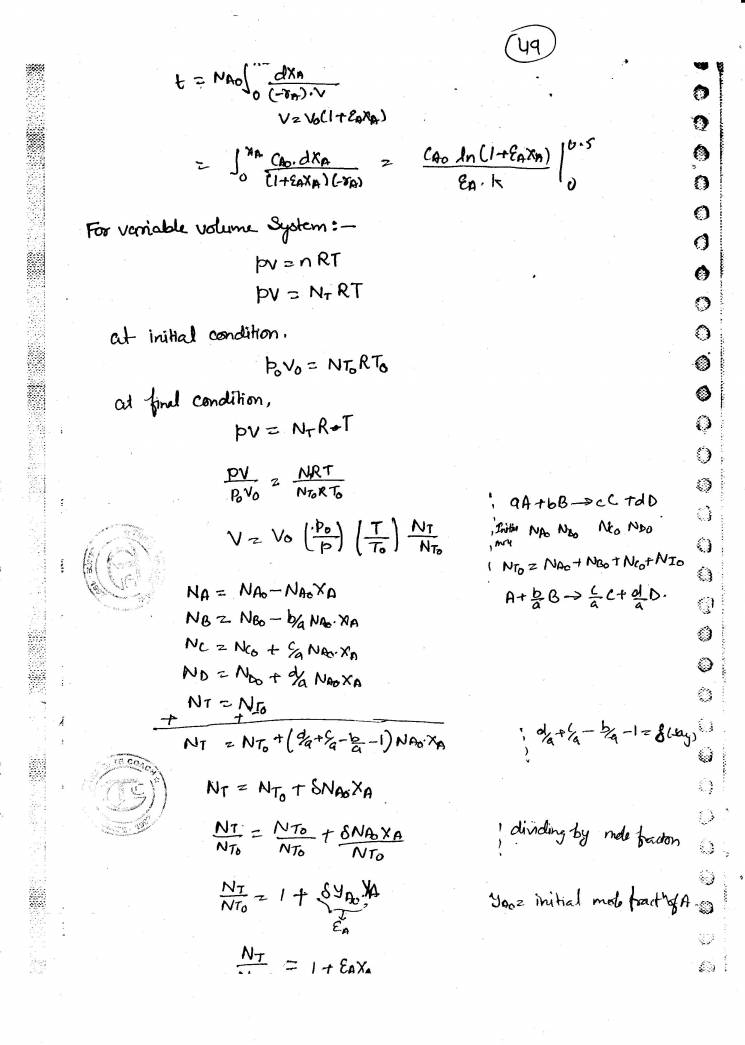 49
t = NA0 ∫0 dXA / (-rA)·V
V = V0(1+εAXA)
= ∫0^XA CA0·dXA / (1+εAXA)(-rA) = CA0 ln(1+εAXA) / εA·k |0^0.5
For variable volume System:-
pV = nRT
pV = NT RT
at initial condition.
P0V0 = NT0RT0
at final condition,
pV = NT R·T
pV / P0V0 = NRT / NT0RT0
; aA+bB→cC+dD
V = V0 (P0/P) (T/T0) NT/NT0
NA0 NB0 NC0 ND0
NT0 = NA0+NB0+NC0+NI0
NA = NA0-NA0XA
A+b/a B→c/a C+d/a D.
NB = NB0-b/a NA0·XA
NC = NC0+c/a NA0·XA
ND = ND0+d/a NA0XA
NI = NI0
+ +
NT = NT0+(d/a+c/a-b/a-1)NA0·XA
; d/a+c/a-b/a-1=δ(say)
NT = NT0+δNA0XA
NT/NT0 = NT0/NT0 + δNA0XA/NT0
dividing by mole fraction
NT/NT0 = 1+δyA0·XA
yA0= initial mole fractn of A
εA
NT = 1+εAXA